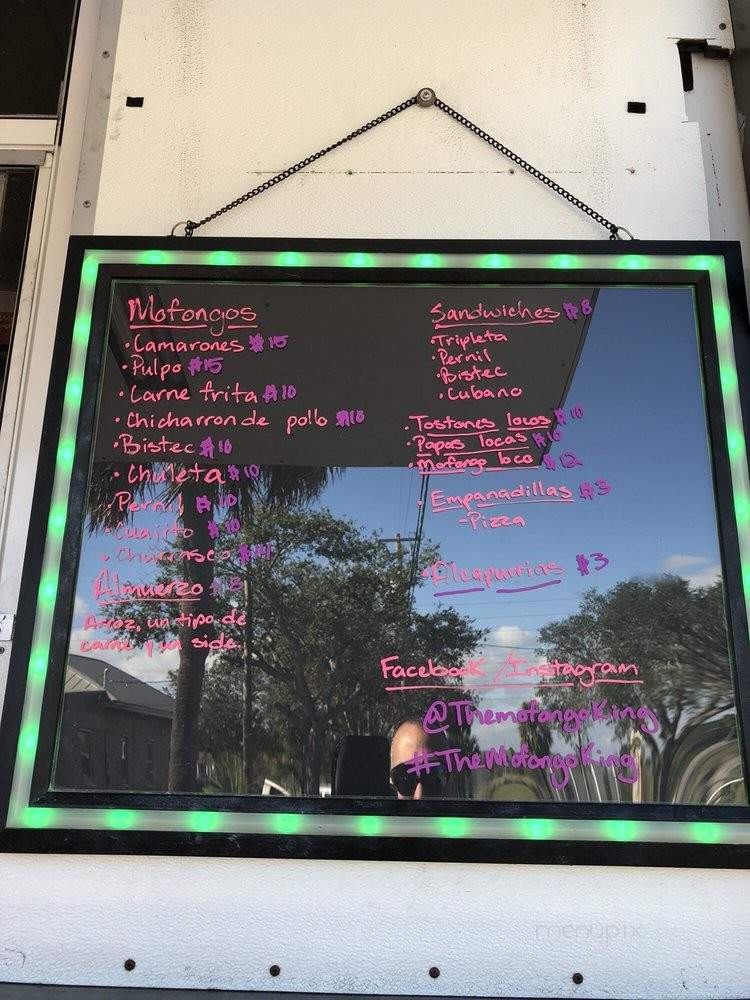 Mofongos
• Camarones $15
• Pulpo $15
• Carne frita $10
• Chicharron de pollo $10
• Bistec $10
• Chuleta $10
• Pernil $10
• Cuajito $10
• Churrasco
Almuerzo $8
Arroz, un tipo de
carne y un side.
Sandwiches $8
• Tripleta
• Pernil
• Bistec
• Cubano
• Tostones locos $10
• Papas locas
• Mofongo loco $12
• Empanadillas $3
- Pizza
• Alcapurrias $3
Facebook / Instagram
@ThemofongoKing
#TheMofongoKing
menupix